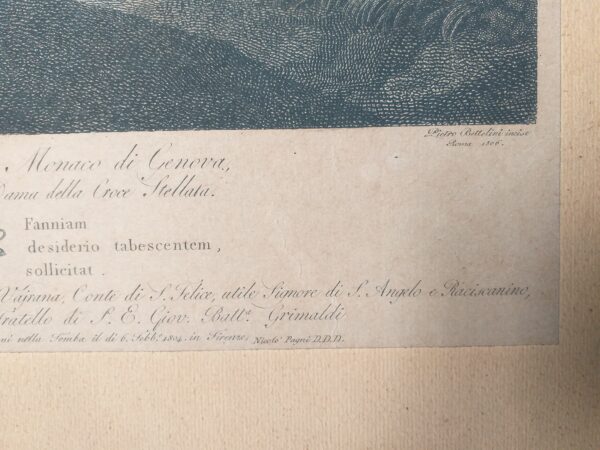 Pietro Bettelini incise
Roma 1806.
Monaco di Genova,
Dama della Croce Stellata.
Fanniam
desiderio tabescentem,
sollicitat.
Vajrana, Conte di S. Felice, utile Signore di S. Angelo e Raciscanino,
fratello di S. E. Giov. Batt.ª Grimaldi
nella Tomba il dì 6. Febb.º 1804. in Firenze, Nicolò Pagni D.D.D.